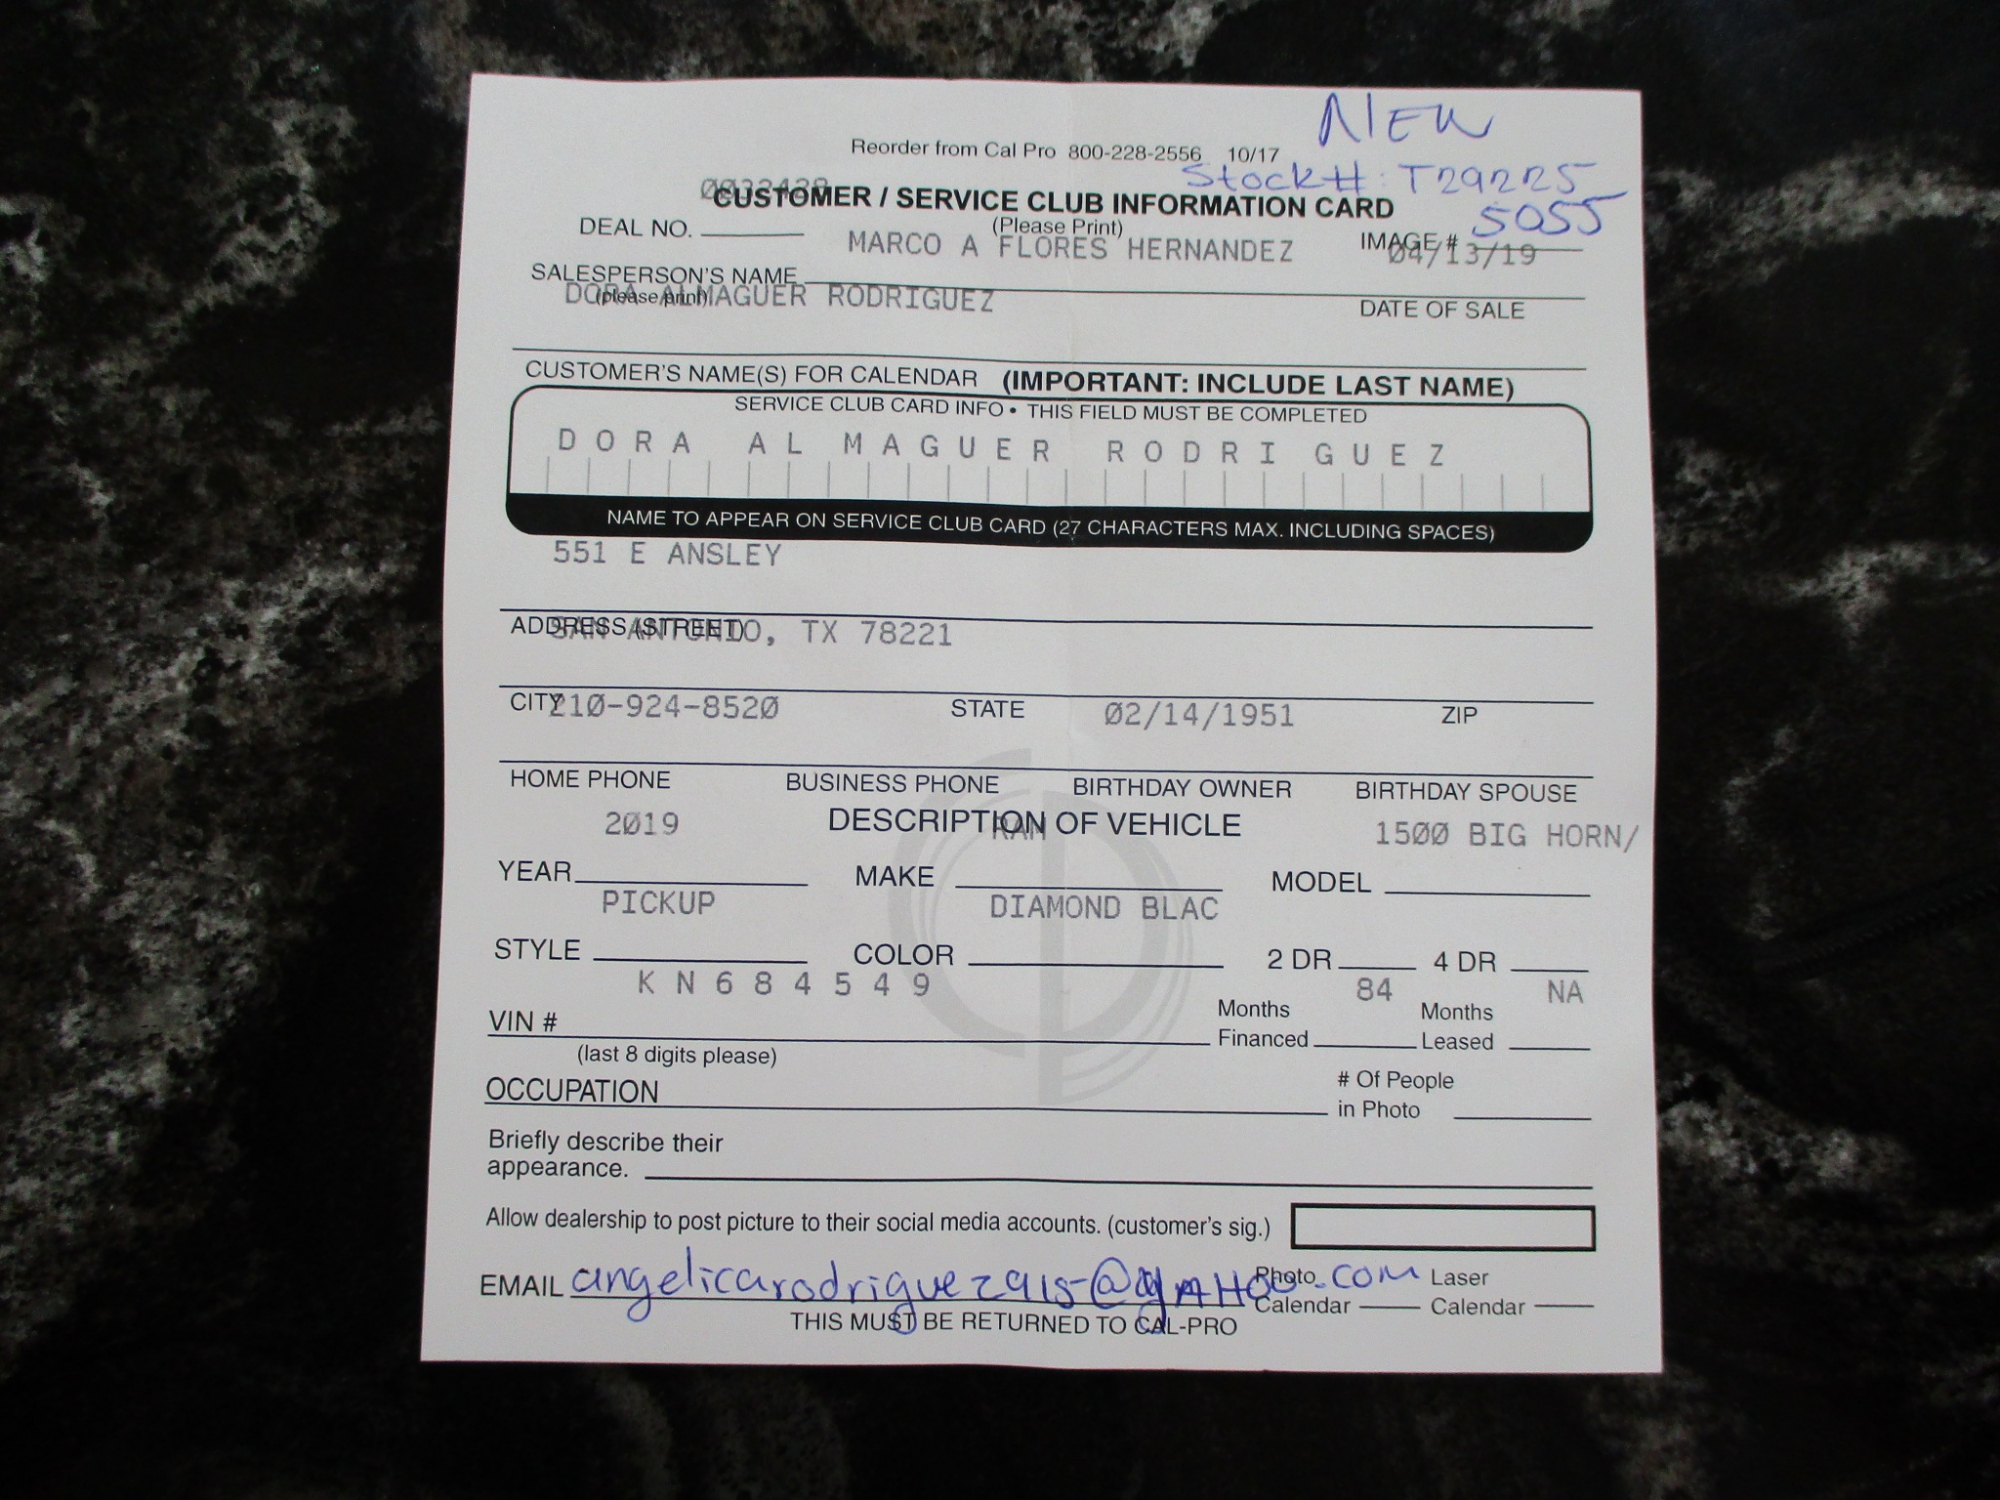 NEW
Reorder from Cal Pro 800-228-2556 10/17
Stock#: T29225
CUSTOMER / SERVICE CLUB INFORMATION CARD
5055
DEAL NO.
(Please Print)
IMAGE #
MARCO A FLORES HERNANDEZ
04/13/19
SALESPERSON'S NAME
(please print)
DORA ALMAGUER RODRIGUEZ
DATE OF SALE
CUSTOMER'S NAME(S) FOR CALENDAR (IMPORTANT: INCLUDE LAST NAME)
SERVICE CLUB CARD INFO • THIS FIELD MUST BE COMPLETED
DORA ALMAGUER RODRIGUEZ
NAME TO APPEAR ON SERVICE CLUB CARD (27 CHARACTERS MAX. INCLUDING SPACES)
551 E ANSLEY
ADDRESS (STREET)
SAN ANTONIO, TX 78221
CITY STATE ZIP
210-924-8520 02/14/1951
HOME PHONE BUSINESS PHONE BIRTHDAY OWNER BIRTHDAY SPOUSE
DESCRIPTION OF VEHICLE
2019 RAM 1500 BIG HORN/
YEAR MAKE MODEL
PICKUP DIAMOND BLAC
STYLE COLOR 2 DR 4 DR
KN684549 84 NA
VIN # Months Financed Months Leased
(last 8 digits please)
OCCUPATION # Of People in Photo
Briefly describe their
appearance.
Allow dealership to post picture to their social media accounts. (customer's sig.)
EMAIL angelicarodriguez915@YAHOO.COM Photo Calendar Laser Calendar
THIS MUST BE RETURNED TO CAL-PRO